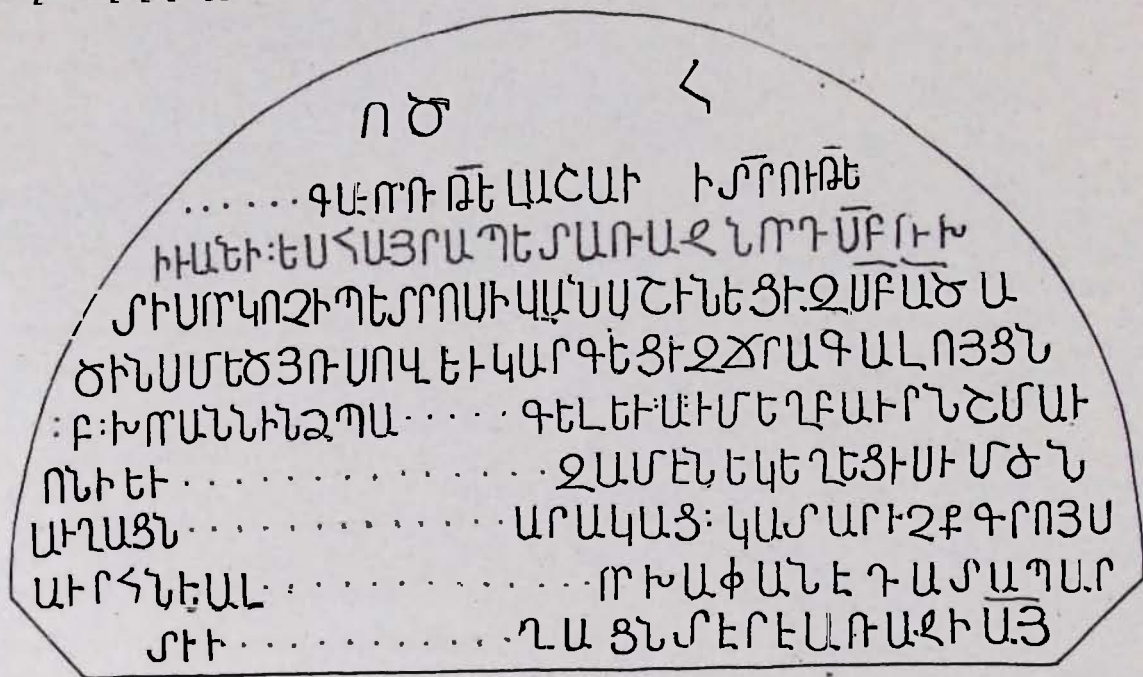 ՈԾ Հ
......ԳԱ:ՈՐՌ ԹԷ ԼԱՇԱԻ ԻՏՐՈՒԹԵ
ԻՒԱՆԻ:ԵՍՀԱՅՐԱՊԵՏԱՌԱՋՆՈՐԴՍԲՐԻԽ
ՏԻՍՈՐԿՈՉԻՊԵՏՐՈՍԻՎԱՆՍՇԻՆԵՑԻԶՍԲԱԾԱ
ԾԻՆՍՄԵԾՅՌՍՈՎԵՒԿԱՐԳԵՑԻԶՃՐԱԳԱԼՈՅՑՆ
:Բ:ԽՈՐԱՆՆԻՆՁՊԱ.....ԳԵԼԵՒԱՒՄԵՂԲԱՒՐՆՇՄԱՒ
ՈՆԻԵՒ..............ԶԱՄԷՆԵԿԵՂԵՑԻՍԻՄԾՆ
ԱՒՂԱՑՆ..............ԱՐԱԿԱՑ: ԿԱՄԱՐԻՉՔԳՐՈՅՍ
ԱՒՐՀՆԵԱԼ..............ՈՐԽԱՓԱՆԷԴԱՏԱՊԱՐ
ՏԻԻ............ՂԱՑՆՄԵՐԵԱՌԱՋԻԱՅ